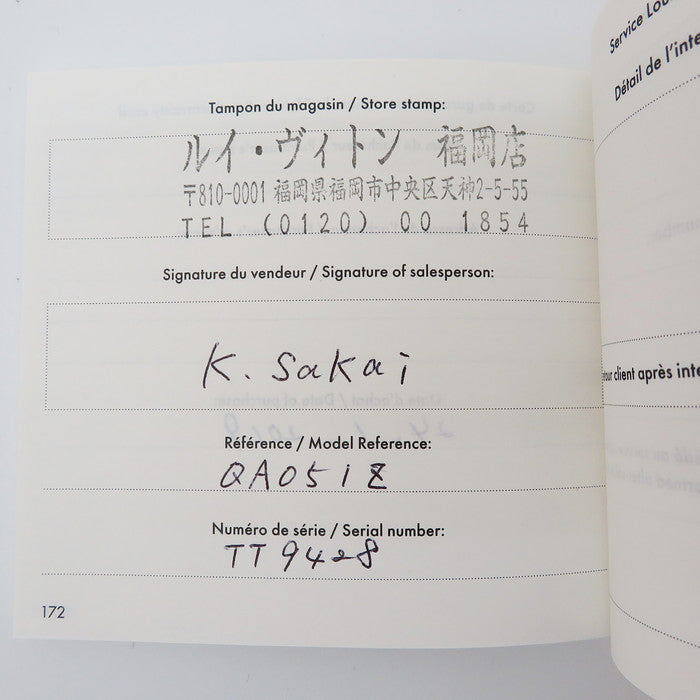 Tampon du magasin / Store stamp:
ルイ・ヴィトン 福岡店
〒810-0001 福岡県福岡市中央区天神2-5-55
TEL (0120) 00 1854
Signature du vendeur / Signature of salesperson:
K. Sakai
Référence / Model Reference:
QA051Z
Numéro de série / Serial number:
TT9428
172
Service Lou
Détail de l'inte
tour client après inte